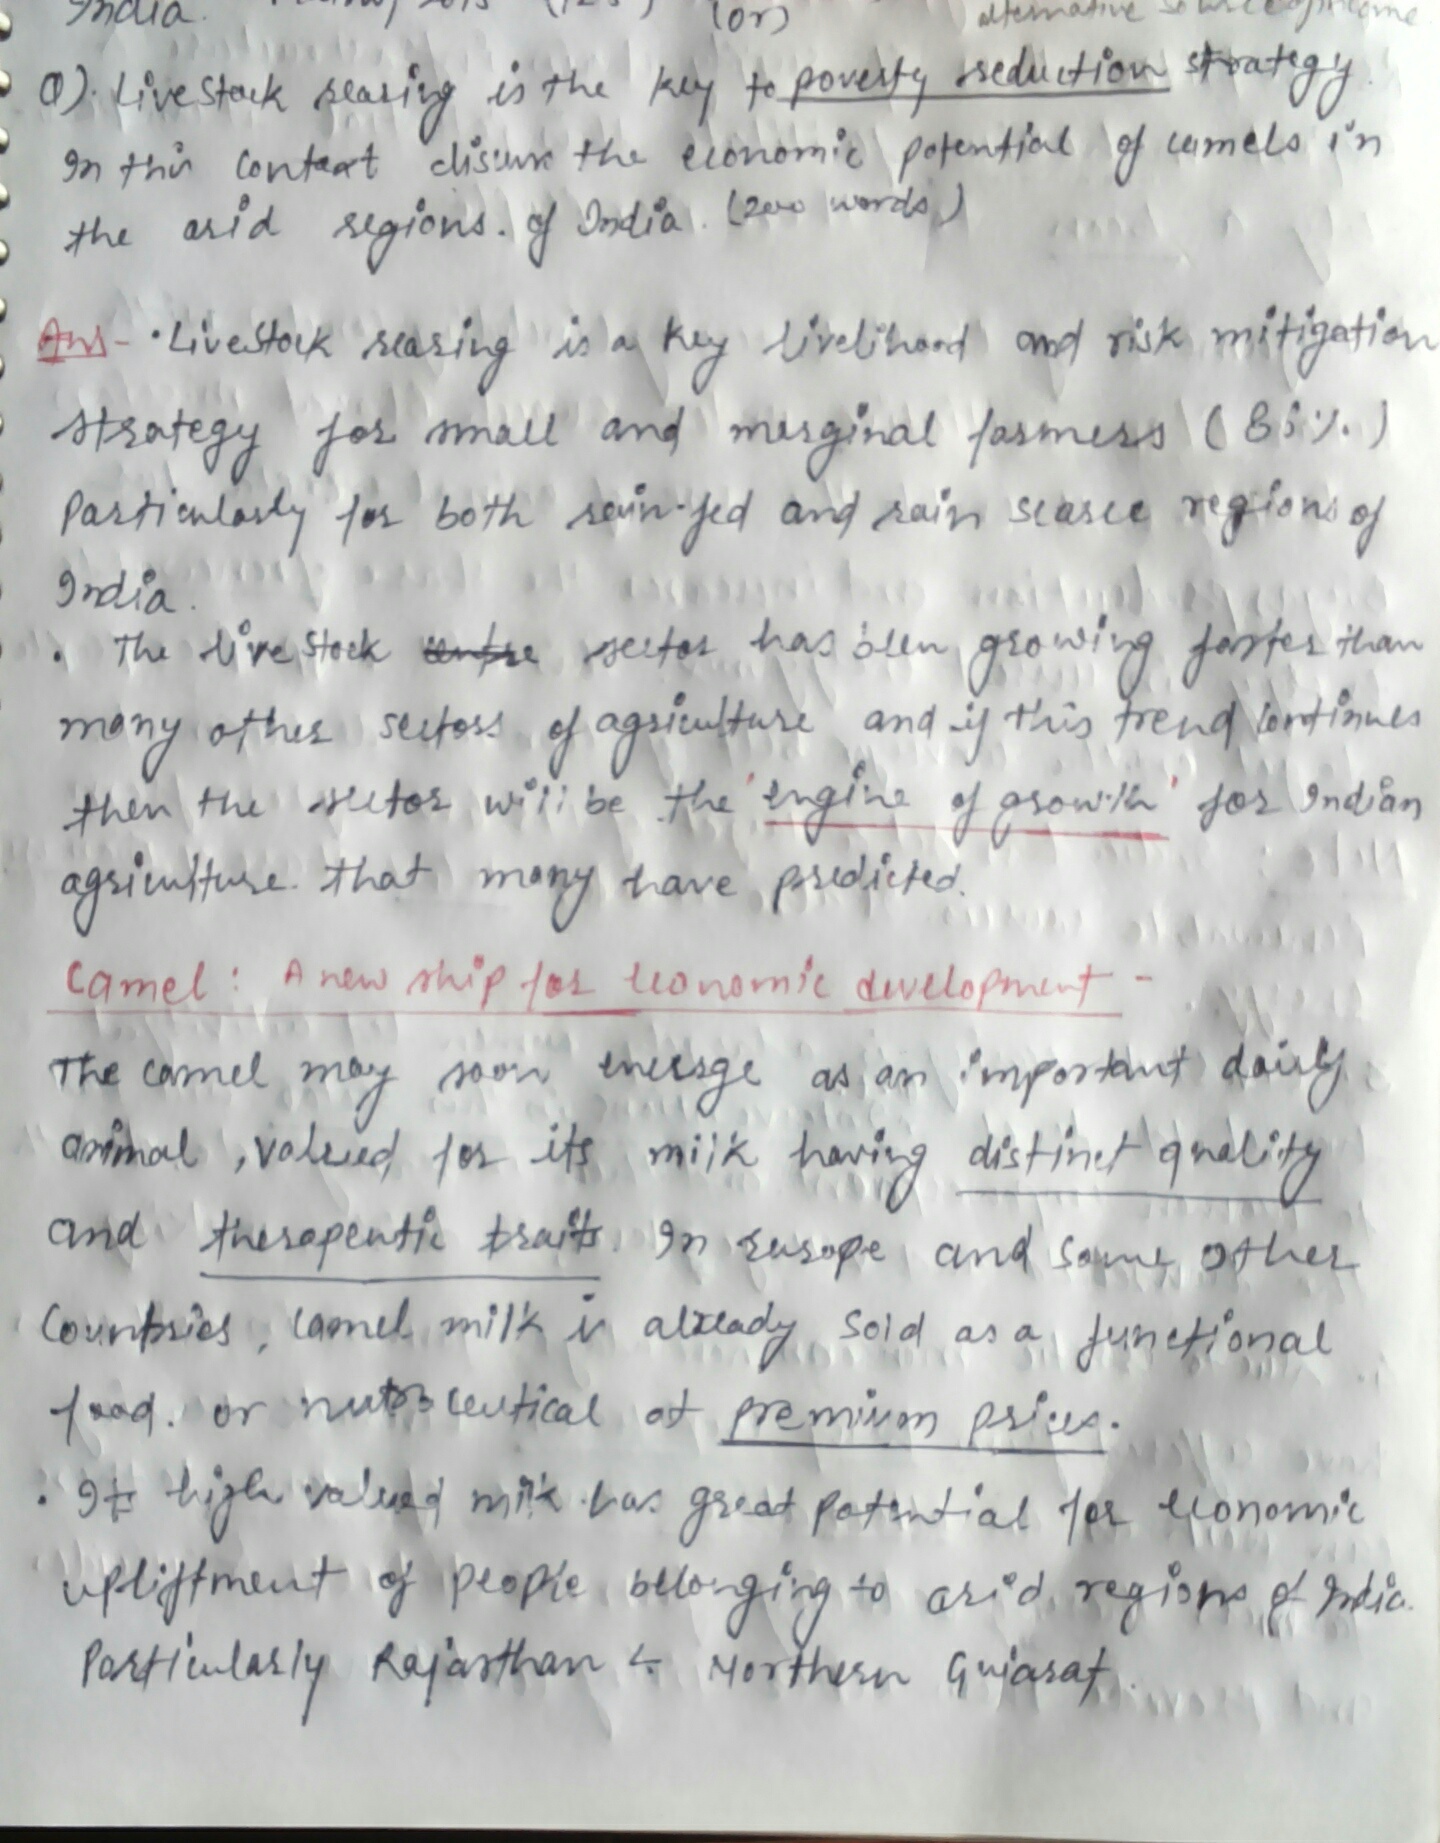 India. 2015 (125)   (or)   alternative source of income
Q). Livestock rearing is the key to poverty reduction strategy.
In this context discuss the economic potential of camels in
the arid regions. of India. (200 words)
Ans- • Livestock rearing is a key livelihood and risk mitigation
strategy for small and marginal farmers (85%.)
Particularly for both rain-fed and rain scarce regions of
India.
• The livestock sector has been growing faster than
many other sectors of agriculture and if this trend continues
then the sector will be the 'engine of growth' for Indian
agriculture. that many have predicted.
Camel: A new ship for economic development -
The camel may soon emerge as an important dairy
animal, valued for its milk having distinct quality
and therapeutic traits. In europe and some other
Countries, camel milk is already sold as a functional
food. or nutraceutical at premium prices.
• Its high valued milk has great potential for economic
upliftment of people belonging to arid regions of India.
Particularly Rajasthan & Northern Gujarat.